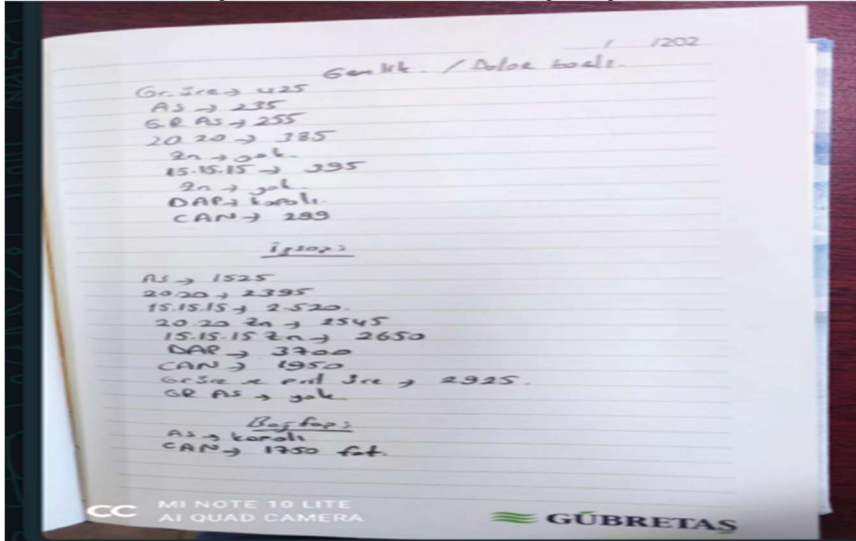 / /202
Gemlik. / Dolar bazlı.
Gr. Üre → 425
AS → 235
GR AS → 255
20.20 → 385
Zn → yok.
15.15.15 → 395
Zn → yok.
DAP → kapalı.
CAN → 299
İgsaş:
AS → 1525
20.20 → 2395
15.15.15 → 2.520.
20.20 Zn → 2545
15.15.15 Zn → 2650
DAP → 3700
CAN → 1950
Gr Üre ve pril Üre → 2925.
GR AS → yok
Bagfaş:
AS → kapalı
CAN → 1750 fot.
CC MI NOTE 10 LITE
AI QUAD CAMERA
GÜBRETAŞ